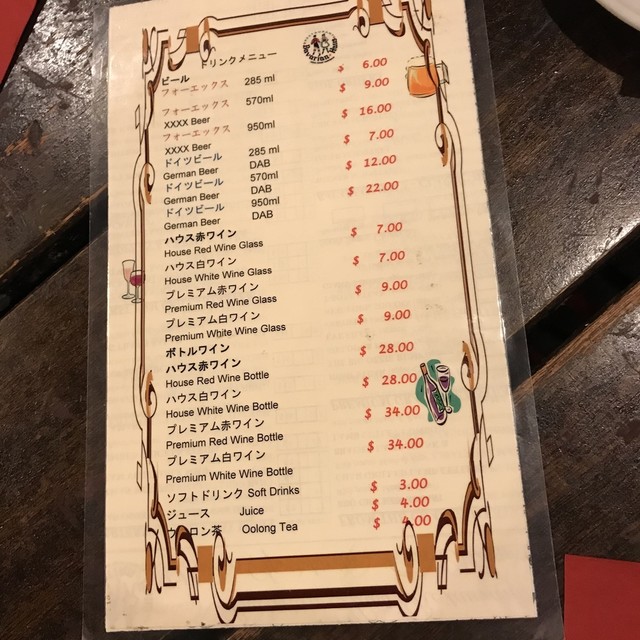 ドリンクメニュー
ビール
フォーエックス 285 ml $ 6.00
フォーエックス 570ml $ 9.00
XXXX Beer
フォーエックス 950ml $ 16.00
XXXX Beer
ドイツビール 285 ml $ 7.00
German Beer DAB
ドイツビール 570ml $ 12.00
German Beer DAB
ドイツビール 950ml $ 22.00
German Beer DAB
ハウス赤ワイン $ 7.00
House Red Wine Glass
ハウス白ワイン $ 7.00
House White Wine Glass
プレミアム赤ワイン $ 9.00
Premium Red Wine Glass
プレミアム白ワイン $ 9.00
Premium White Wine Glass
ボトルワイン
ハウス赤ワイン $ 28.00
House Red Wine Bottle
ハウス白ワイン $ 28.00
House White Wine Bottle
プレミアム赤ワイン $ 34.00
Premium Red Wine Bottle
プレミアム白ワイン $ 34.00
Premium White Wine Bottle
ソフトドリンク Soft Drinks $ 3.00
ジュース Juice $ 4.00
ウーロン茶 Oolong Tea $ 4.00